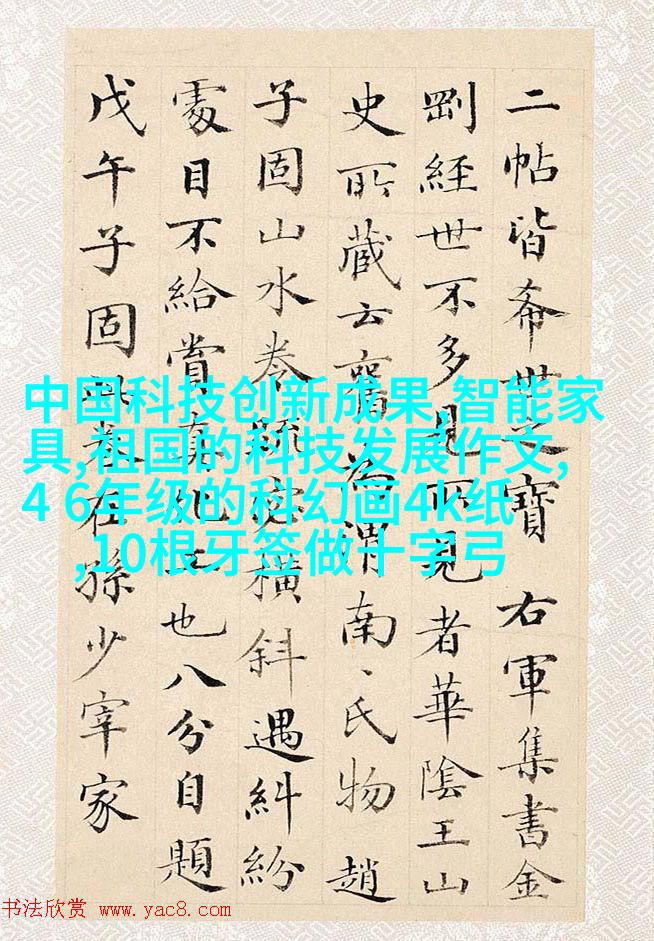 二帖皆希世之寳 右軍集書金
剛經世不多見所見者華陰王山
史所藏云舊為渭南、氏物趙
子固山水卷疏密橫斜遇糾紛
處目不給賞真也八分自題
戊午子固此卷在孫少宰家
中国科技创新成果,智能家
具,祖国的科技发展作文,
4 6年级的科幻画4k纸
,10根牙签做十字弓
书法欣赏 www.yac8.com